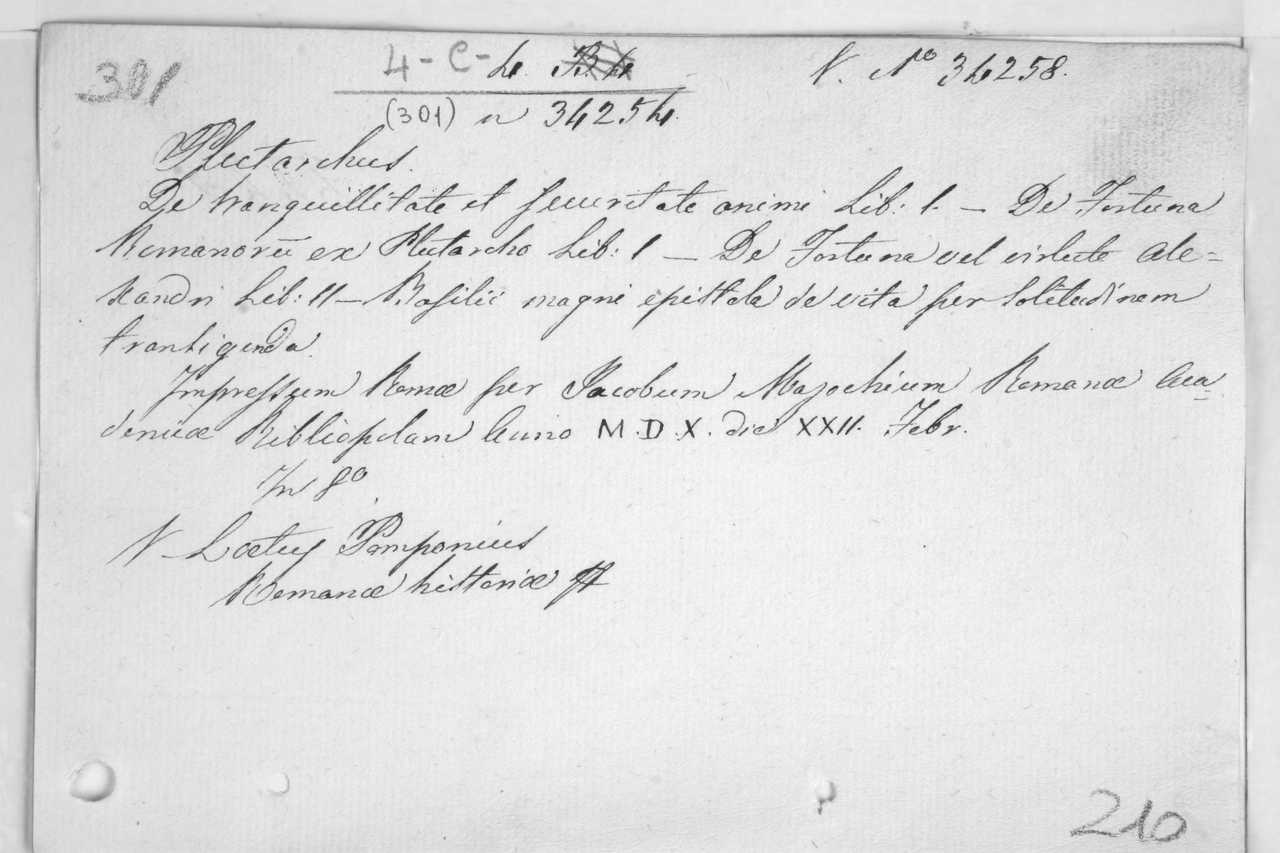 301
4-C-4.
V. N.º 34258.
(301) n 34254.
Plutarchus.
De tranquillitate et securitate animi Lib: 1. — De Fortuna
Romanorū ex Plutarcho Lib: 1 — De Fortuna vel virtute Ale=
xandri Lib: 11 — Basilii magni epistola de vita per solitudinem
transigenda.
Impressum Romæ per Jacobum Mazochium Romanæ Aca=
demiæ Bibliopolam Anno M.D.X. die XXII. Febr.
In 8º
V- Lætus Pomponius
Romanæ historiæ
210